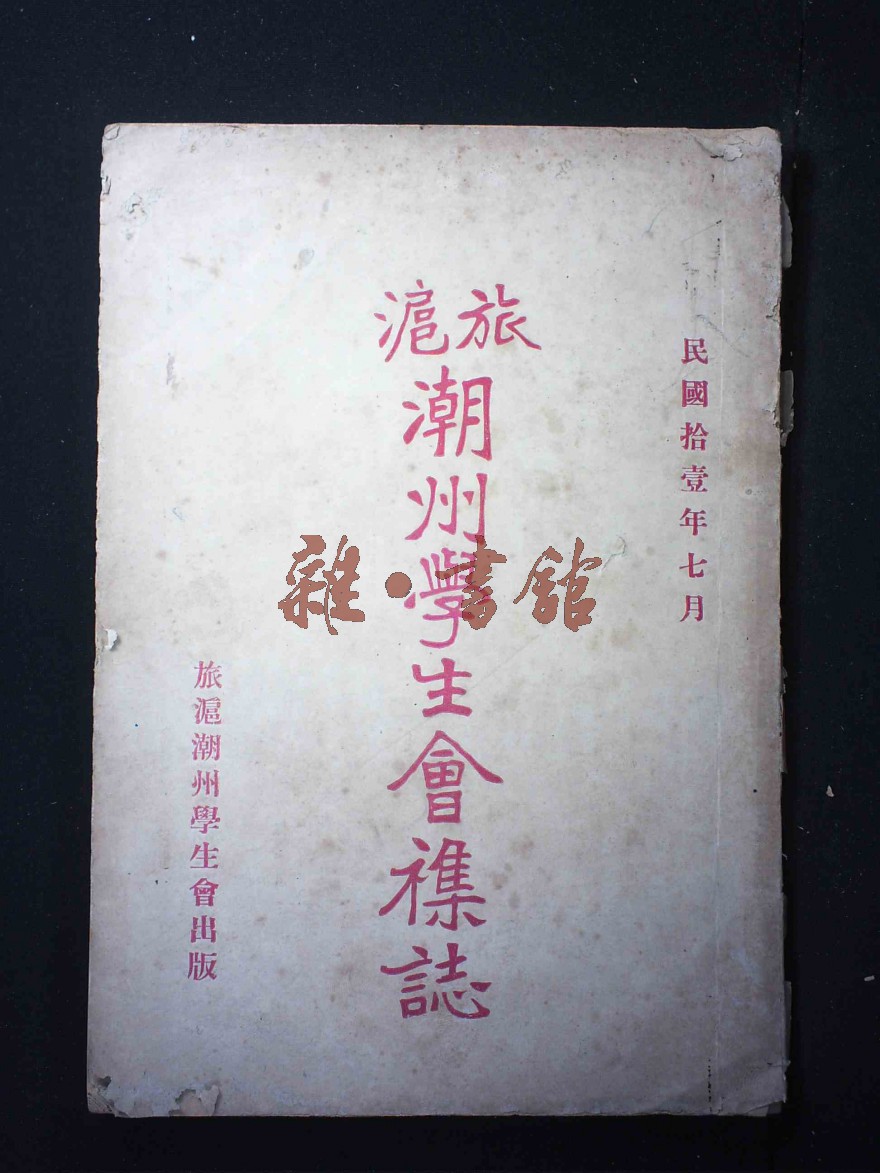 民國拾壹年七月
旅滬
潮州學生會襍誌
旅滬潮州學生會出版
雜·書館